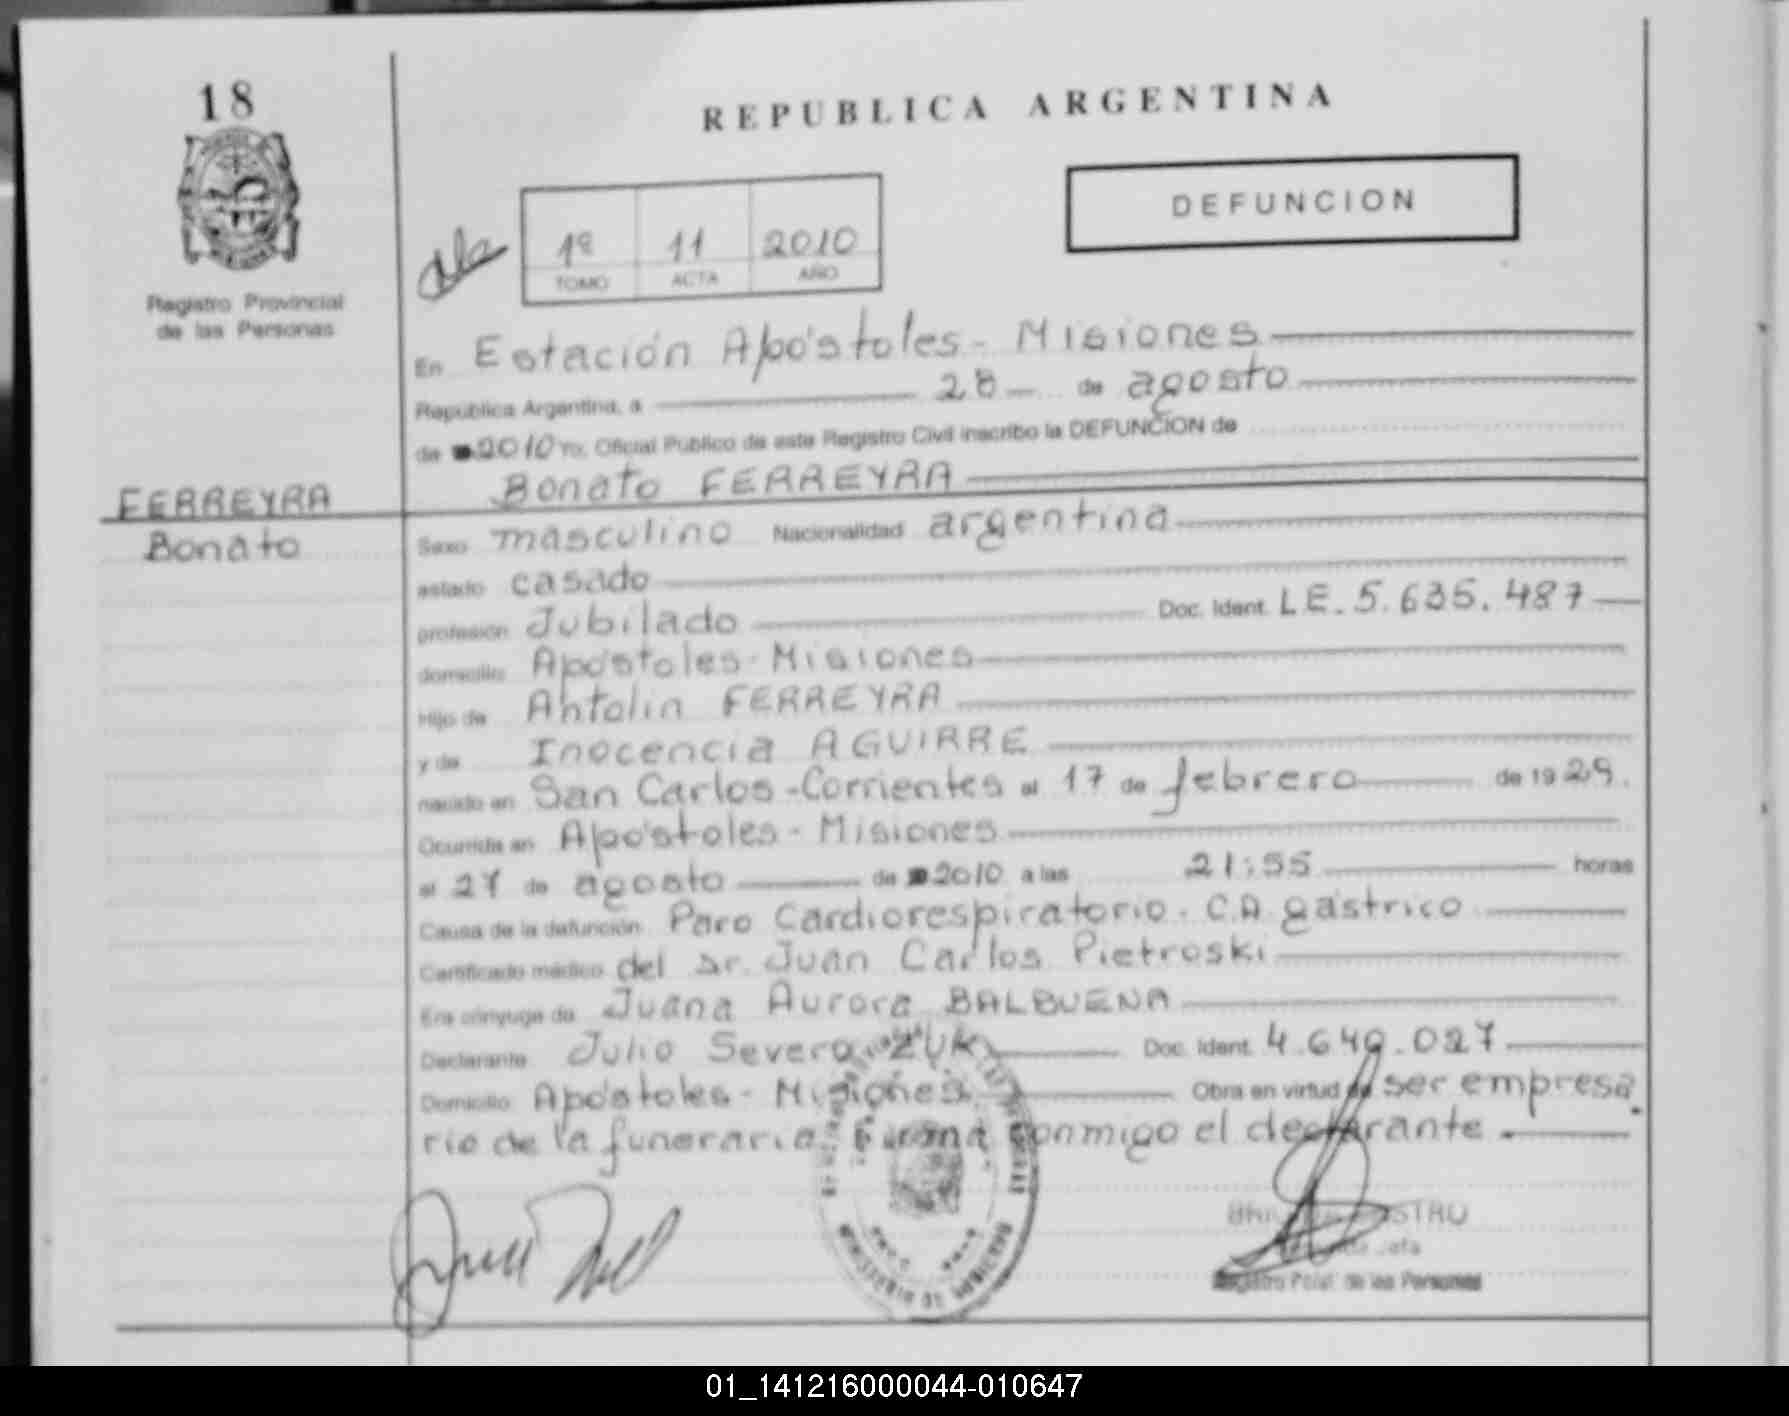 18
REPUBLICA ARGENTINA
DEFUNCION
1º 11 2010
TOMO ACTA AÑO
Registro Provincial
de las Personas
En Estación Apóstoles - Misiones
República Argentina, a 28 de agosto
de 2010 Yo, Oficial Público de este Registro Civil inscribo la DEFUNCION de
Bonato FERREYRA
FERREYRA
Bonato
Sexo masculino Nacionalidad argentina
estado casado
profesión Jubilado Doc. Ident. L.E. 5.635.487
domicilio Apóstoles - Misiones
Hijo de Antolin FERREYRA
y de Inocencia AGUIRRE
nacido en San Carlos - Corrientes el 17 de febrero de 1929.
Ocurrida en Apóstoles - Misiones
el 27 de agosto de 2010 a las 21:55 horas
Causa de la defunción Paro Cardiorespiratorio. C.A. gástrico
Certificado médico del Dr. Juan Carlos Pietroski
Era cónyuge de Juana Aurora BALBUENA
Declarante Julio Severo ZUK Doc. Ident. 4.640.027
Domicilio Apóstoles - Misiones Obra en virtud de ser empresa
rio de la funeraria. Firma conmigo el declarante.
MINISTERIO DE GOBIERNO
Registro Pcial. de las Personas
01_141216000044-010647